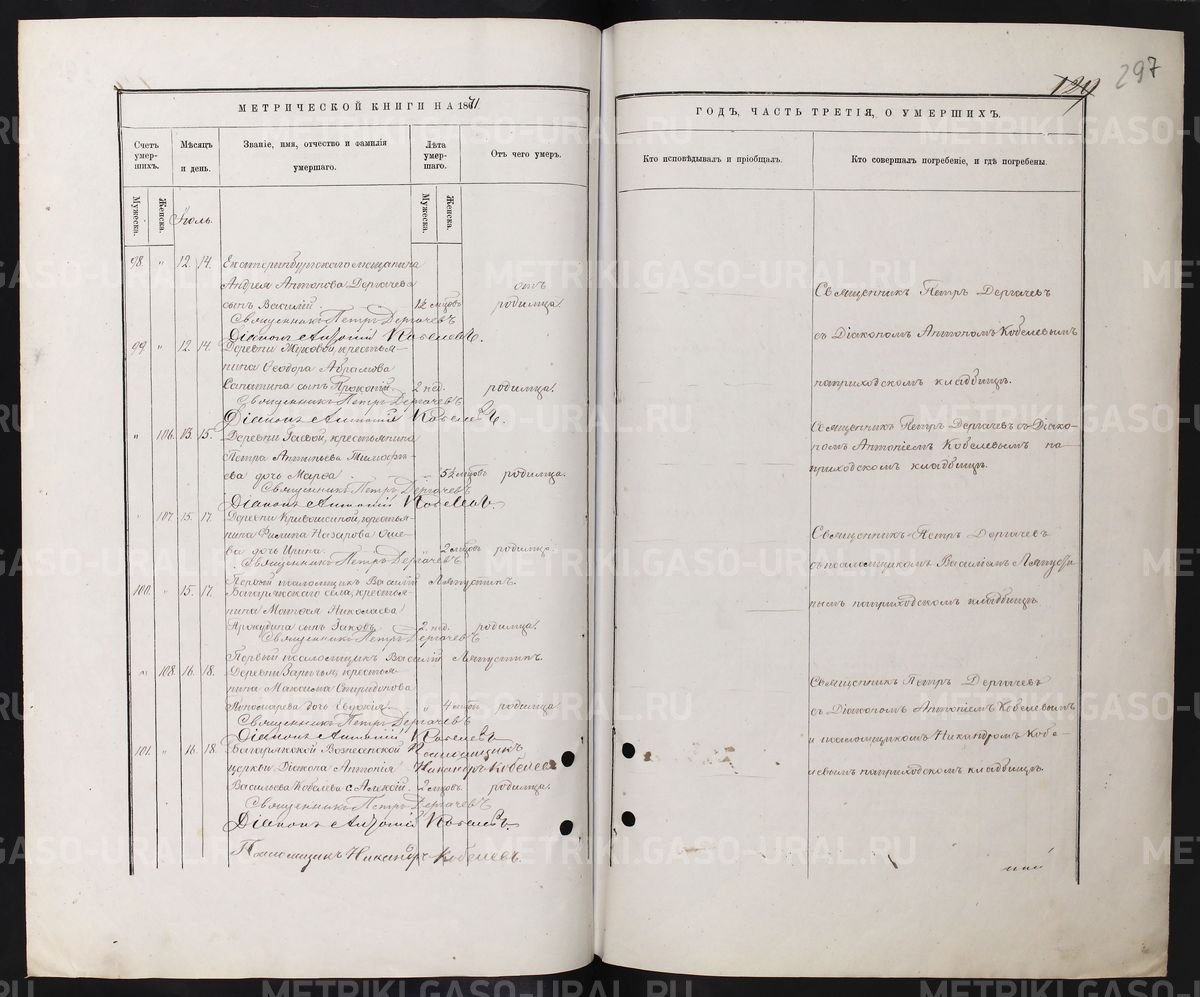 129
297
МЕТРИЧЕСКОЙ КНИГИ НА 1871
ГОДЪ, ЧАСТЬ ТРЕТІЯ, О УМЕРШИХЪ.
Счетъ умер-шихъ.
Мѣсяцъ и день.
Званіе, имя, отчество и фамилія умершаго.
Лѣта умер-шаго.
Отъ чего умеръ.
Кто исповѣдывалъ и пріобщалъ.
Кто совершалъ погребеніе, и гдѣ погребены.
Мужеска.
Женска.
Іюль.
Мужеска.
Женска.
98. " 12. 14. Екатеринбургскаго мѣщанина
Андрея Антонова Дергачева отъ
сынъ Василій. 1½ мѣсяцовъ родимца.
Священникъ Петръ Дергачевъ
Діаконъ Антоній Кобелевъ.
99 " 12. 14. Деревни крестья-
нина Ѳеодора Абрамова
сынъ Прокопій. 2 нед. родимца.
Священникъ Петръ Дергачевъ
Діаконъ Антоній Кобелевъ.
" 106. 13. 15. Деревни Гаевой, крестьянина
Петра Антипьева Тимофѣ-
ева дочь Марѳа. 5½ мѣсяцовъ родимца.
Священникъ Петръ Дергачевъ
Діаконъ Антоній Кобелевъ.
107. 15. 17. Деревни крестья-
нина Филипа Назарова
ва дочь Ирина. 2 мѣсяцовъ родимца.
Священникъ Петръ Дергачевъ
Первый псаломщикъ Василій Ляпустинъ.
100. " 15. 17. села, крестья-
нина Матѳея Николаева
сынъ Іаковъ. 2 нед. родимца.
Священникъ Петръ Дергачевъ
Первый псаломщикъ Василій Ляпустинъ.
" 108. 16. 18. Деревни крестья-
нина Максима Спиридонова
Пономарева дочь Евдокія. " 4 родимца
Священникъ Петръ Дергачевъ
Діаконъ Антоній Кобелевъ
Псаломщикъ
Никандръ Кобелевъ
101. " 16. 18. Вознесенской
церкви Діакона Антонія
Васильева Кобелева с. Алексій. 2 мѣсяцовъ родимца.
Священникъ Петръ Дергачевъ
Діаконъ Антоній Кобелевъ.
Псаломщикъ Никандръ Кобелевъ.
Священникъ Петръ Дергачевъ
съ Діакономъ Антономъ Кобелевымъ
на приходскомъ кладбищѣ.
Священникъ Петръ Дергачевъ съ Діако-
номъ Антоніемъ Кобелевымъ на
приходскомъ кладбищѣ.
Священникъ Петръ Дергачевъ
съ псаломщикомъ Василіемъ Ляпусти-
нымъ на приходскомъ кладбищѣ.
Священникъ Петръ Дергачевъ
съ Діакономъ Антоніемъ Кобелевымъ
и псаломщикомъ Никандромъ Кобе-
левымъ на приходскомъ кладбищѣ.
METRIKI.GASO-URAL.RU